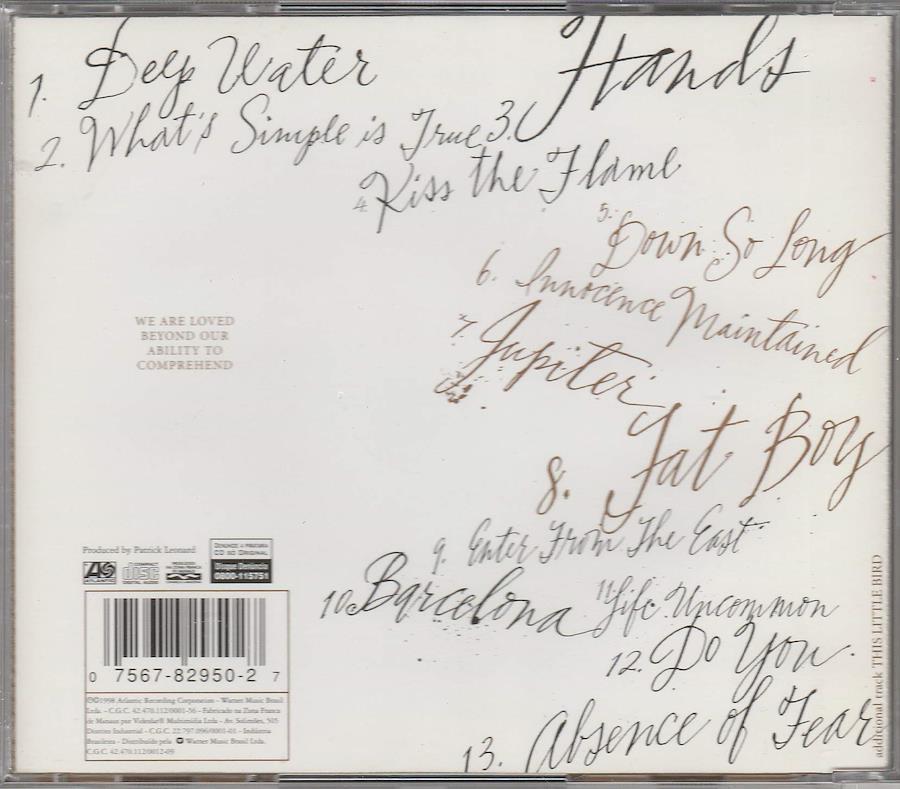 1. Deep Water
2. What's Simple is True
3. Hands
4. Kiss the Flame
5. Down So Long
6. Innocence Maintained
7. Jupiter
8. Fat Boy
9. Enter From The East
10. Barcelona
11. Life Uncommon
12. Do You
13. Absence of Fear
additional track THIS LITTLE BIRD
WE ARE LOVED
BEYOND OUR
ABILITY TO
COMPREHEND
Produced by Patrick Leonard
DENUNCIE A PIRATARIA
CD SÓ ORIGINAL
Disque Denúncia
0800-115751
ATLANTIC
COMPACT
DISC
DIGITAL AUDIO
PRODUZIDO
NA ZONA FRANCA
DE MANAUS
0 7567-82950-2 7
℗©1998 Atlantic Recording Corporation - Warner Music Brasil
Ltda. - C.G.C. 42.470.112/0001-56 - Fabricado na Zona Franca
de Manaus por Videolar® Multimídia Ltda - Av. Solimões, 505
Distrito Industrial - C.G.C. 22.797.096/0001-01 - Indústria
Brasileira - Distribuído pela Warner Music Brasil Ltda.
C.G.C. 42.470.112/0012-09